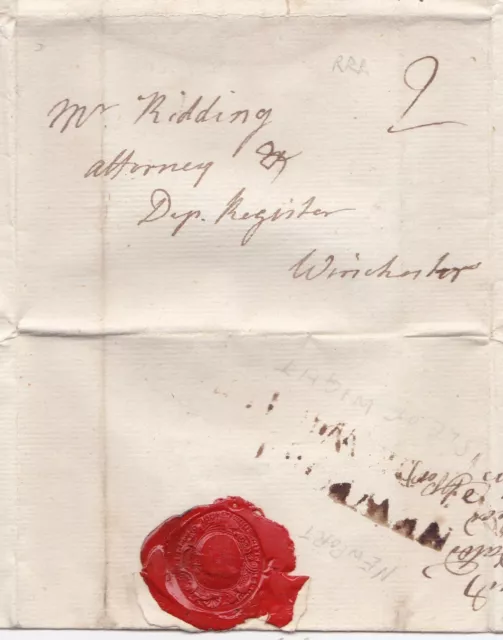 RRR.
2
Mr Ridding
attorney &
Dep. Register
Winchester
ISLE OF WIGHT
NEWPORT